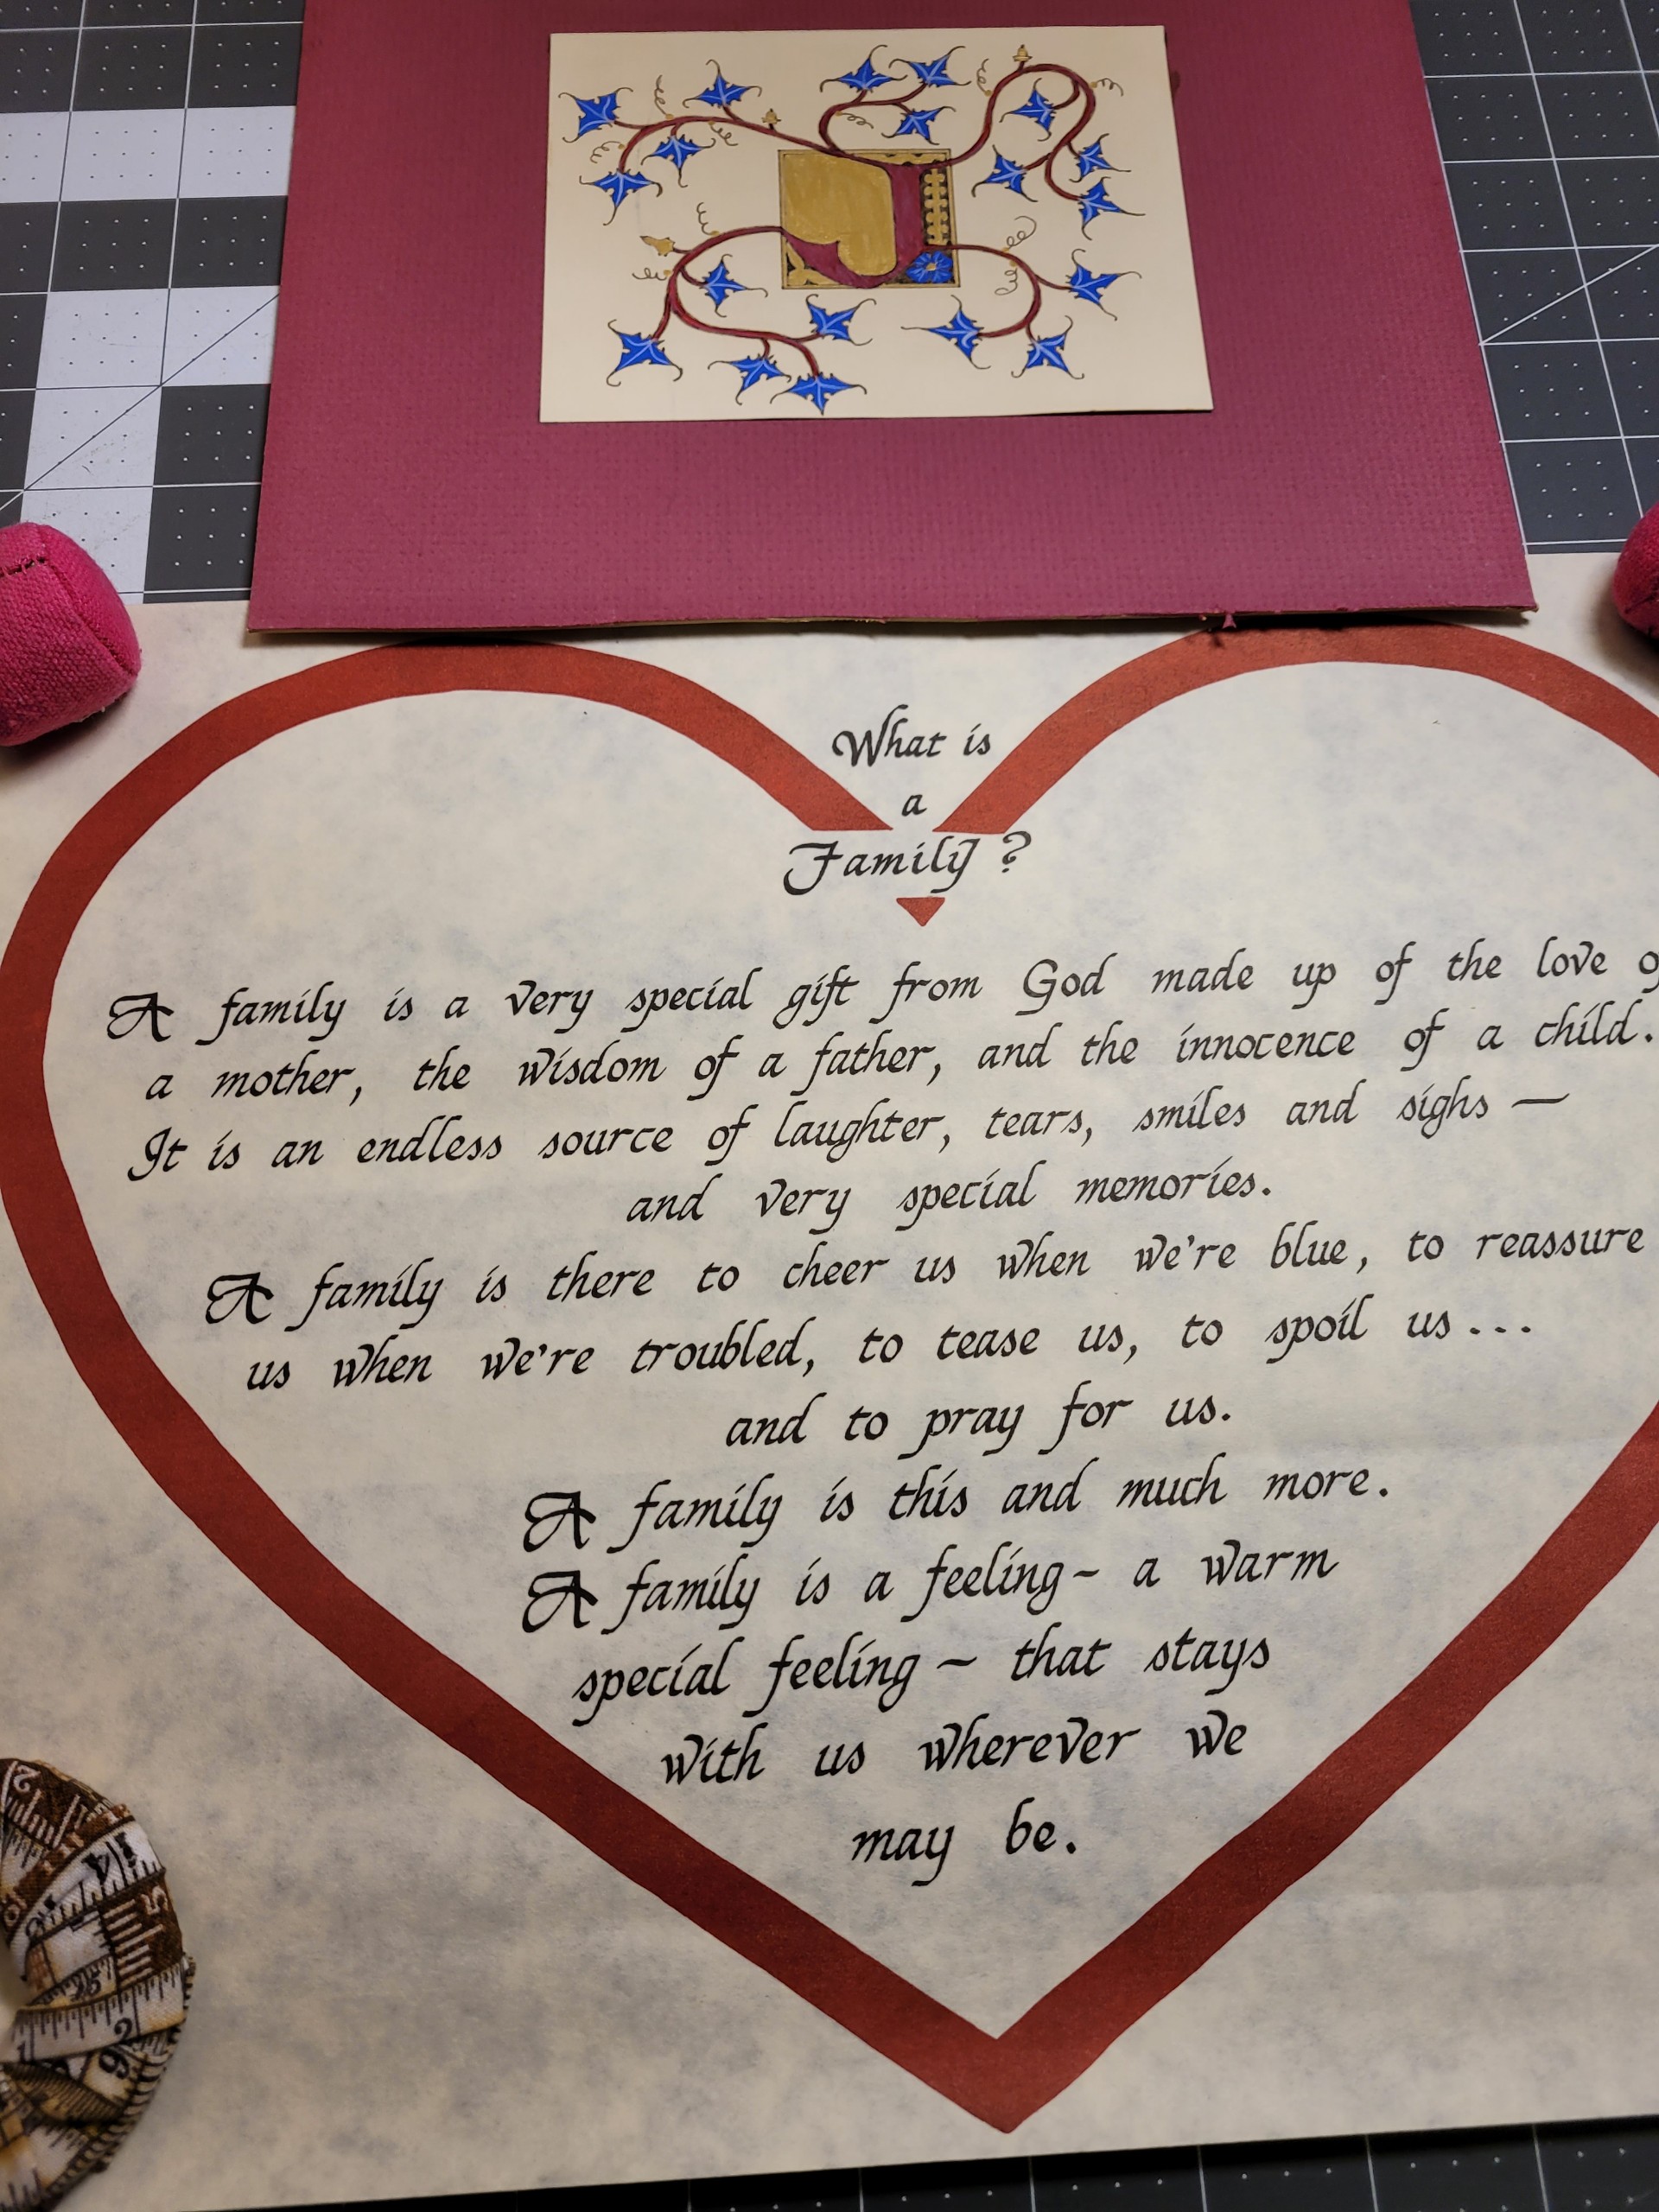 J
What is
a
Family ?
A family is a very special gift from God made up of the love
a mother, the wisdom of a father, and the innocence of a child.
It is an endless source of laughter, tears, smiles and sighs —
and very special memories.
A family is there to cheer us when we're blue, to reassure
us when we're troubled, to tease us, to spoil us...
and to pray for us.
A family is this and much more.
A family is a feeling~ a warm
special feeling ~ that stays
with us wherever we
may be.